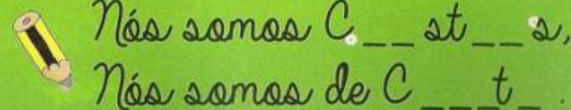 Nós somos C__ st__s,
Nós somos de C___t_.